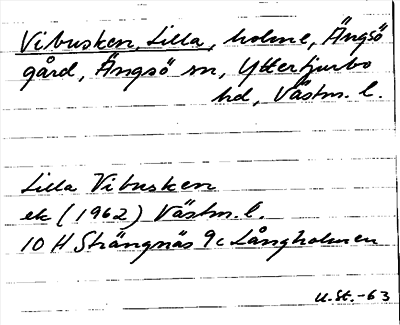 Vibusken, Lilla, holme, Ängsö
gård, Ängsö sn, Yttertjurbo
hd, Västm. l.
Lilla Vibusken
ek (1962) Västm. l.
10 H Strängnäs 9c Långholmen
U.St.-63